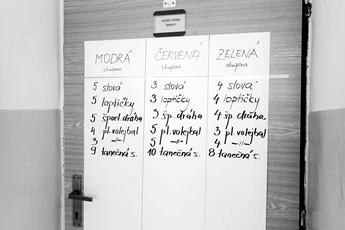 MODRÁ
skupina
5 slová
5 loptičky
5 šport. dráha
4 pl. volejbal
3 -„-
9 tanečná s.
ČERVENÁ
skupina
3 slová
3 loptičky
3 šp. dráha
5 pl. volejbal
5 -„-
10 tanečná s.
ZELENÁ
skupina
4 slová
4 loptičky
4 šp. dráha
3 pl. volejbal
4 -„-
8 tanečná s.